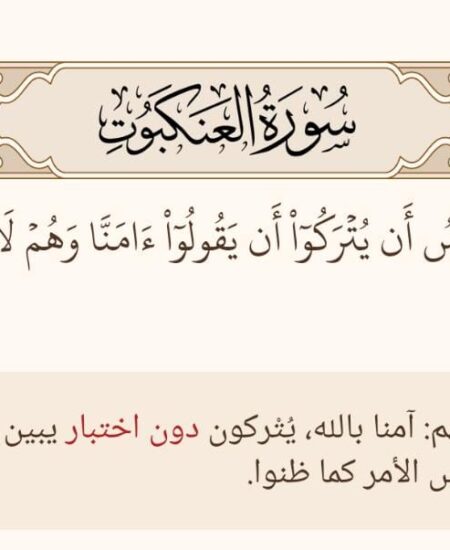 سُورَةُ العَنكَبُوتِ
أَن يُتۡرَكُوٓاْ أَن يَقُولُوٓاْ ءَامَنَّا وَهُمۡ لَا
آمنا بالله، يُتْركون دون اختبار يبين
الأمر كما ظنوا.